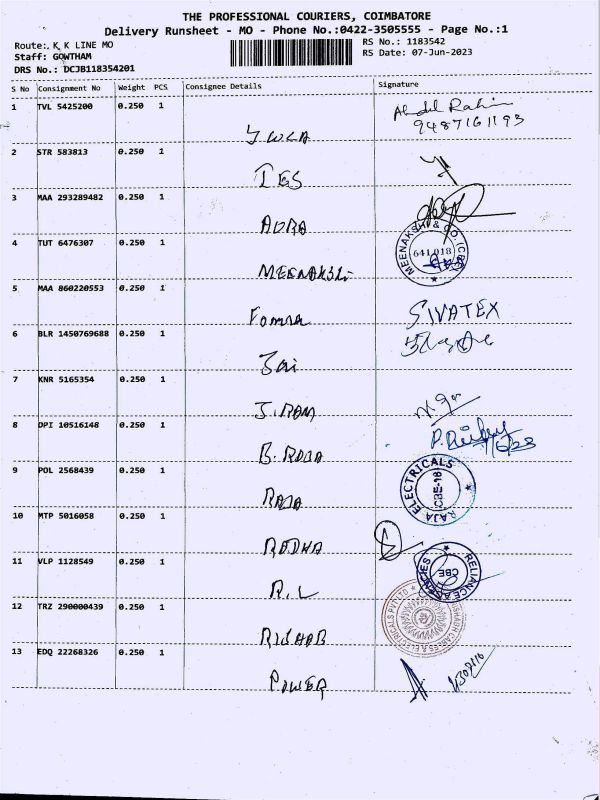 THE PROFESSIONAL COURIERS, COIMBATORE
Delivery Runsheet - MO - Phone No.:0422-3505555 - Page No.:1
Route:. K K LINE MO
RS No.: 1183542
Staff: GOWTHAM
RS Date: 07-Jun-2023
DRS No.: DCJB118354201
S No Consignment No Weight PCS Consignee Details Signature
1 TVL 5425200 0.250 1
Abdul Rahim
9487161193
2 STR 583813 0.250 1
IES
3 MAA 293289482 0.250 1
4 TUT 6476307 0.250 1
MEENAKSHI & CO. (CBE)
641 018
MEENAKSHI
5 MAA 860220553 0.250 1
SIVATEX
6 BLR 1450769688 0.250 1
Jai
7 KNR 5165354 0.250 1
J. RAM
8 DPI 10516148 0.250 1
9 POL 2568439 0.250 1
RAJA ELECTRICALS
CBE-18
RAJA
10 MTP 5016058 0.250 1
RADHA
11 VLP 1128549 0.250 1
RELIANCE AGENCIES
CBE
R. L
12 TRZ 290000439 0.250 1
RISHAB
13 EDQ 22268326 0.250 1
POWER